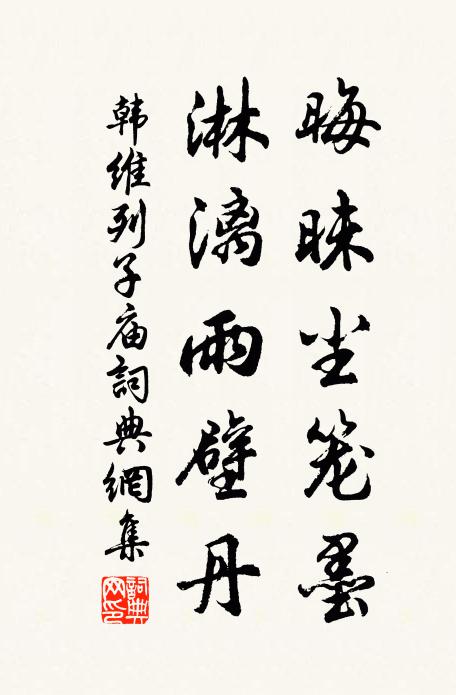 晦昧尘笼墨
淋漓雨壁丹
韩维列子庙詞典網集
詞典网印